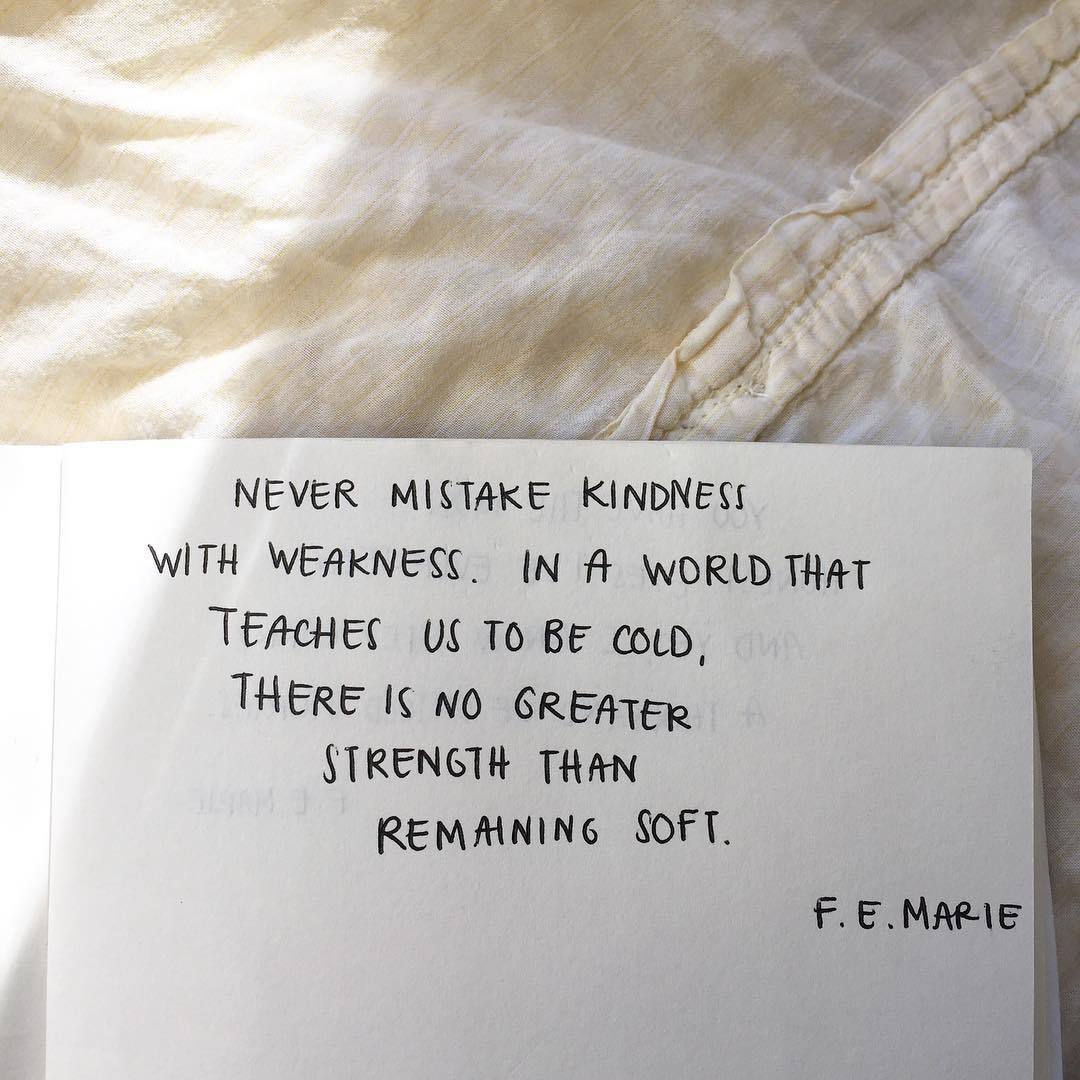 NEVER MISTAKE KINDNESS
WITH WEAKNESS. IN A WORLD THAT
TEACHES US TO BE COLD,
THERE IS NO GREATER
STRENGTH THAN
REMAINING SOFT.
F. E. MARIE